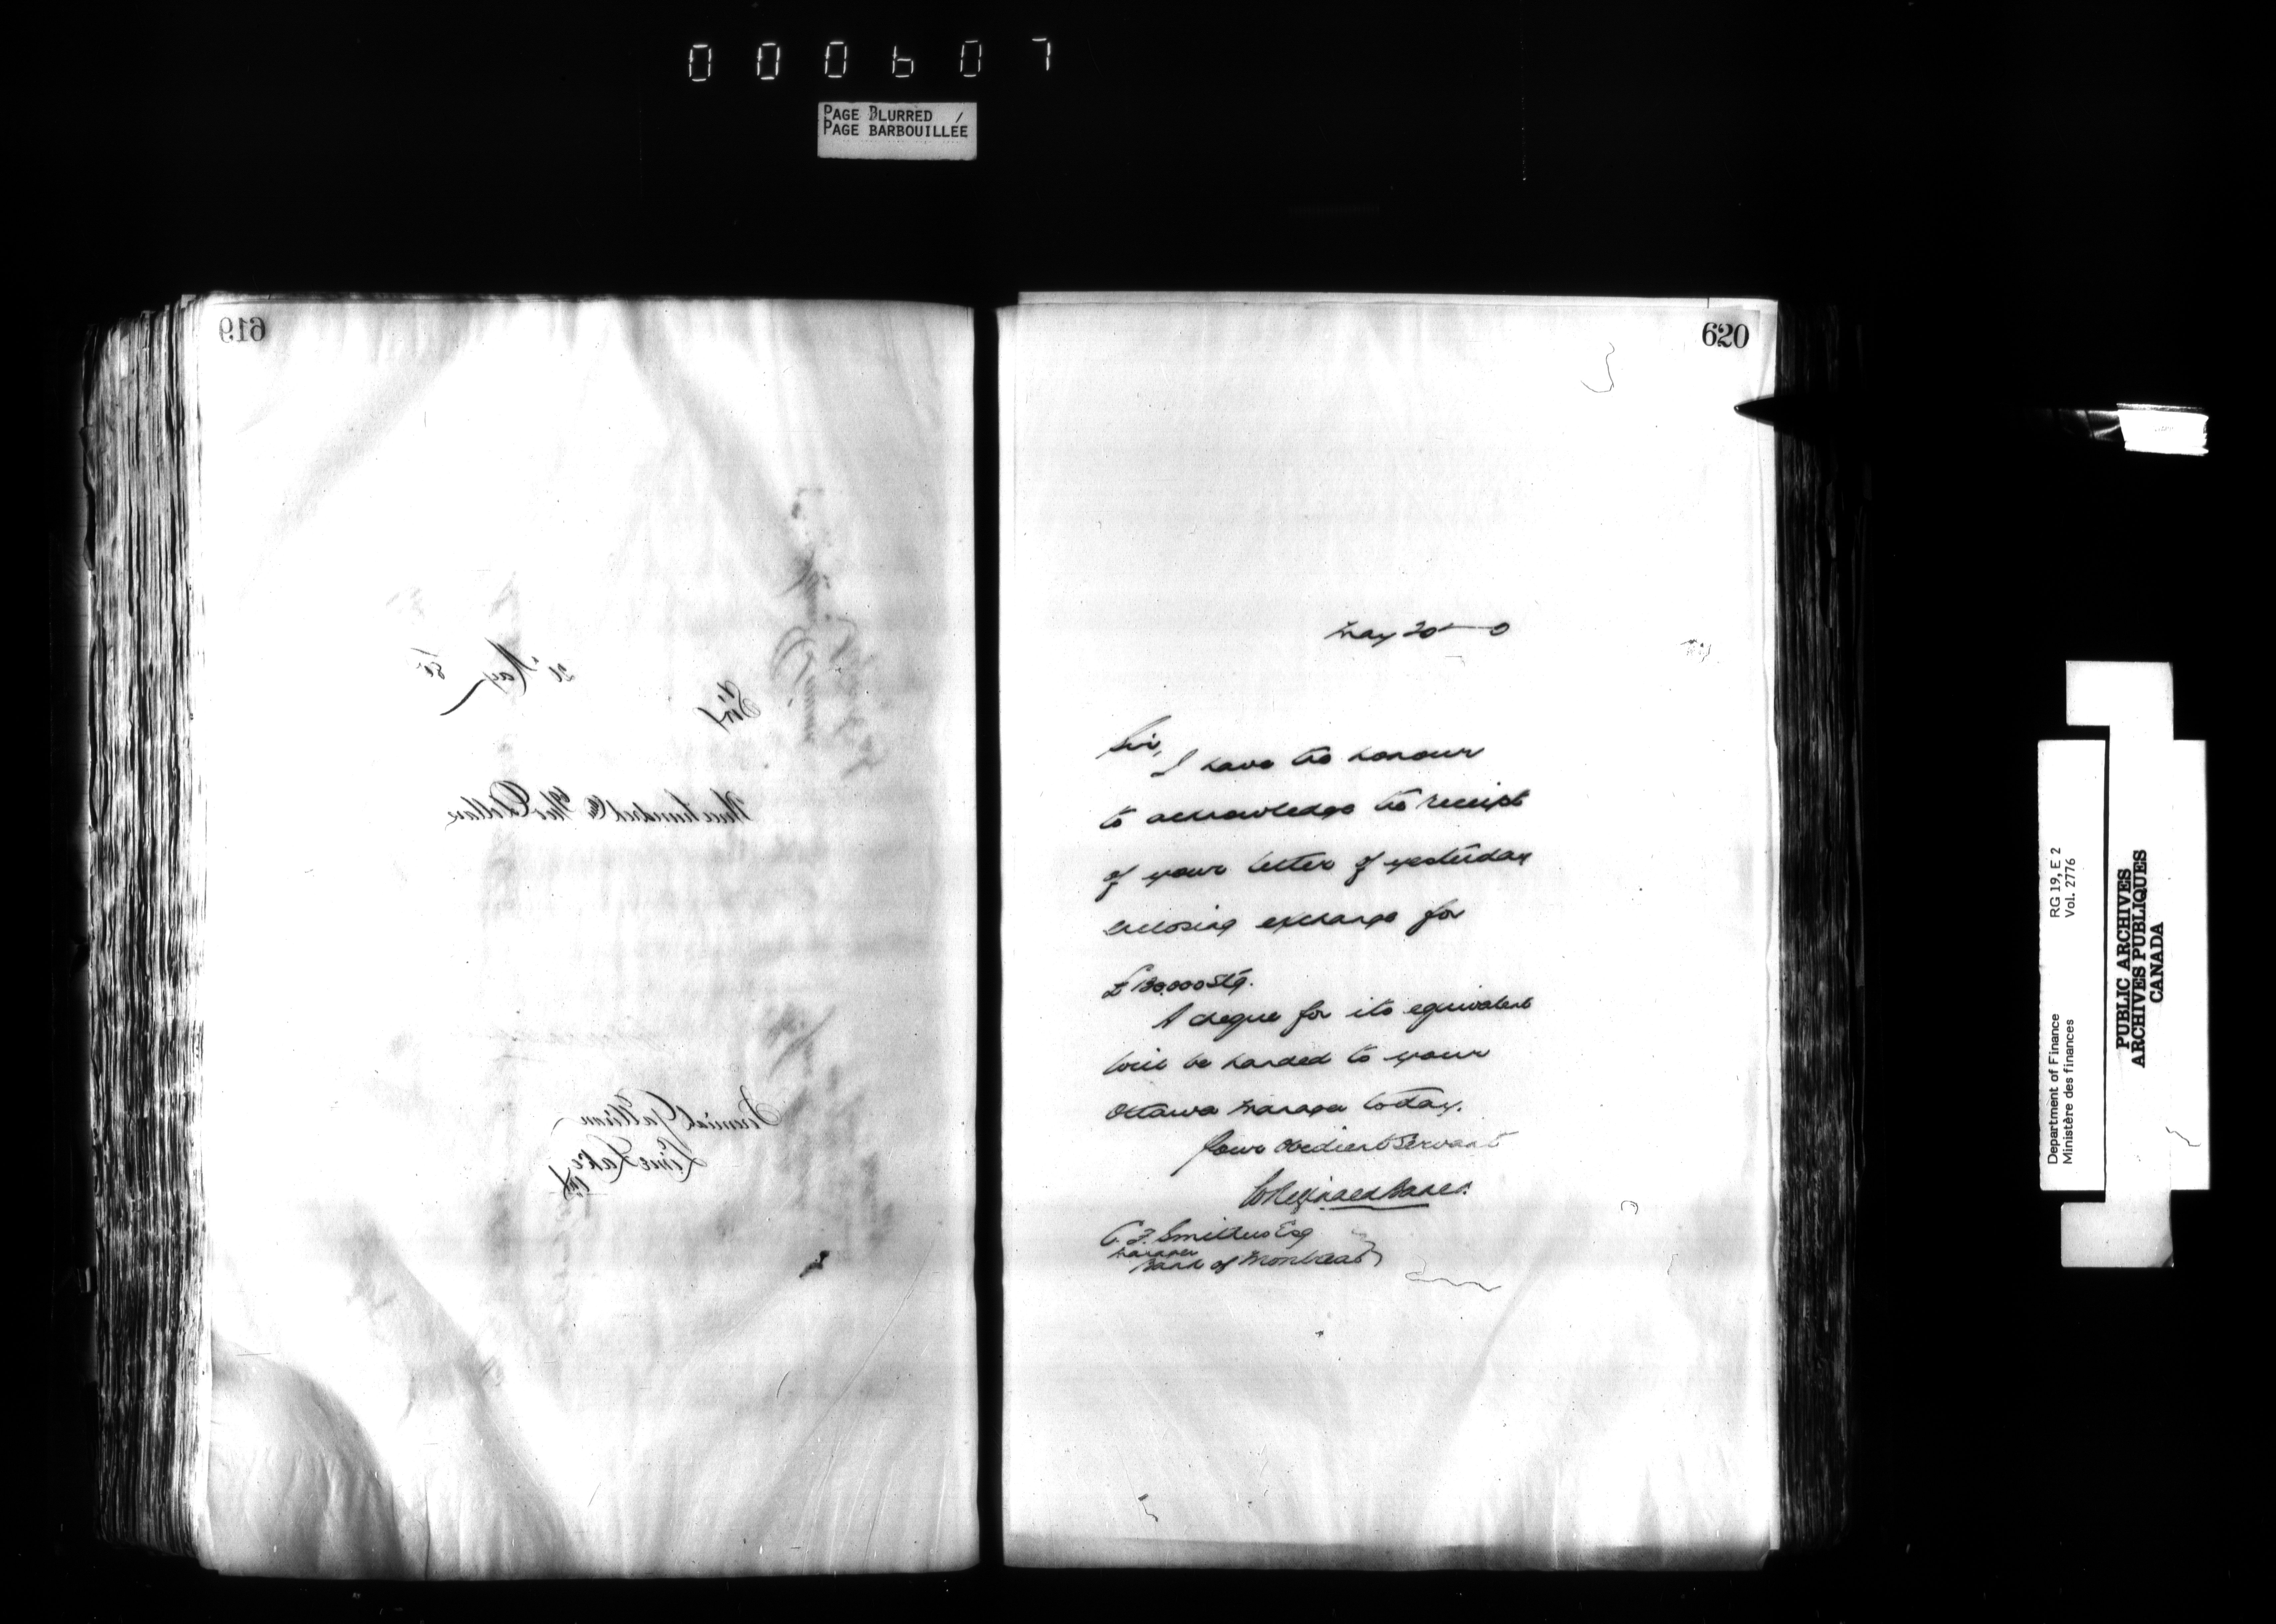 000607
PAGE BLURRED
PAGE BARBOUILLÉE
619
20 May 80
Sir
hundred Dollars
Jeremiah Gallivan
Lime Lake
620
May 20 — 0
Sir,
I have the honour
to acknowledge the receipt
of your letter of yesterday
enclosing exchange for
£130,000 Stg.
A cheque for its equivalent
will be handed to your
Ottawa manager today.
Your obedient Servant
C. F. Smithers Esq
Manager
Bank of Montreal
Department of Finance RG 19, E 2
Ministère des finances Vol. 2776
PUBLIC ARCHIVES
ARCHIVES PUBLIQUES
CANADA